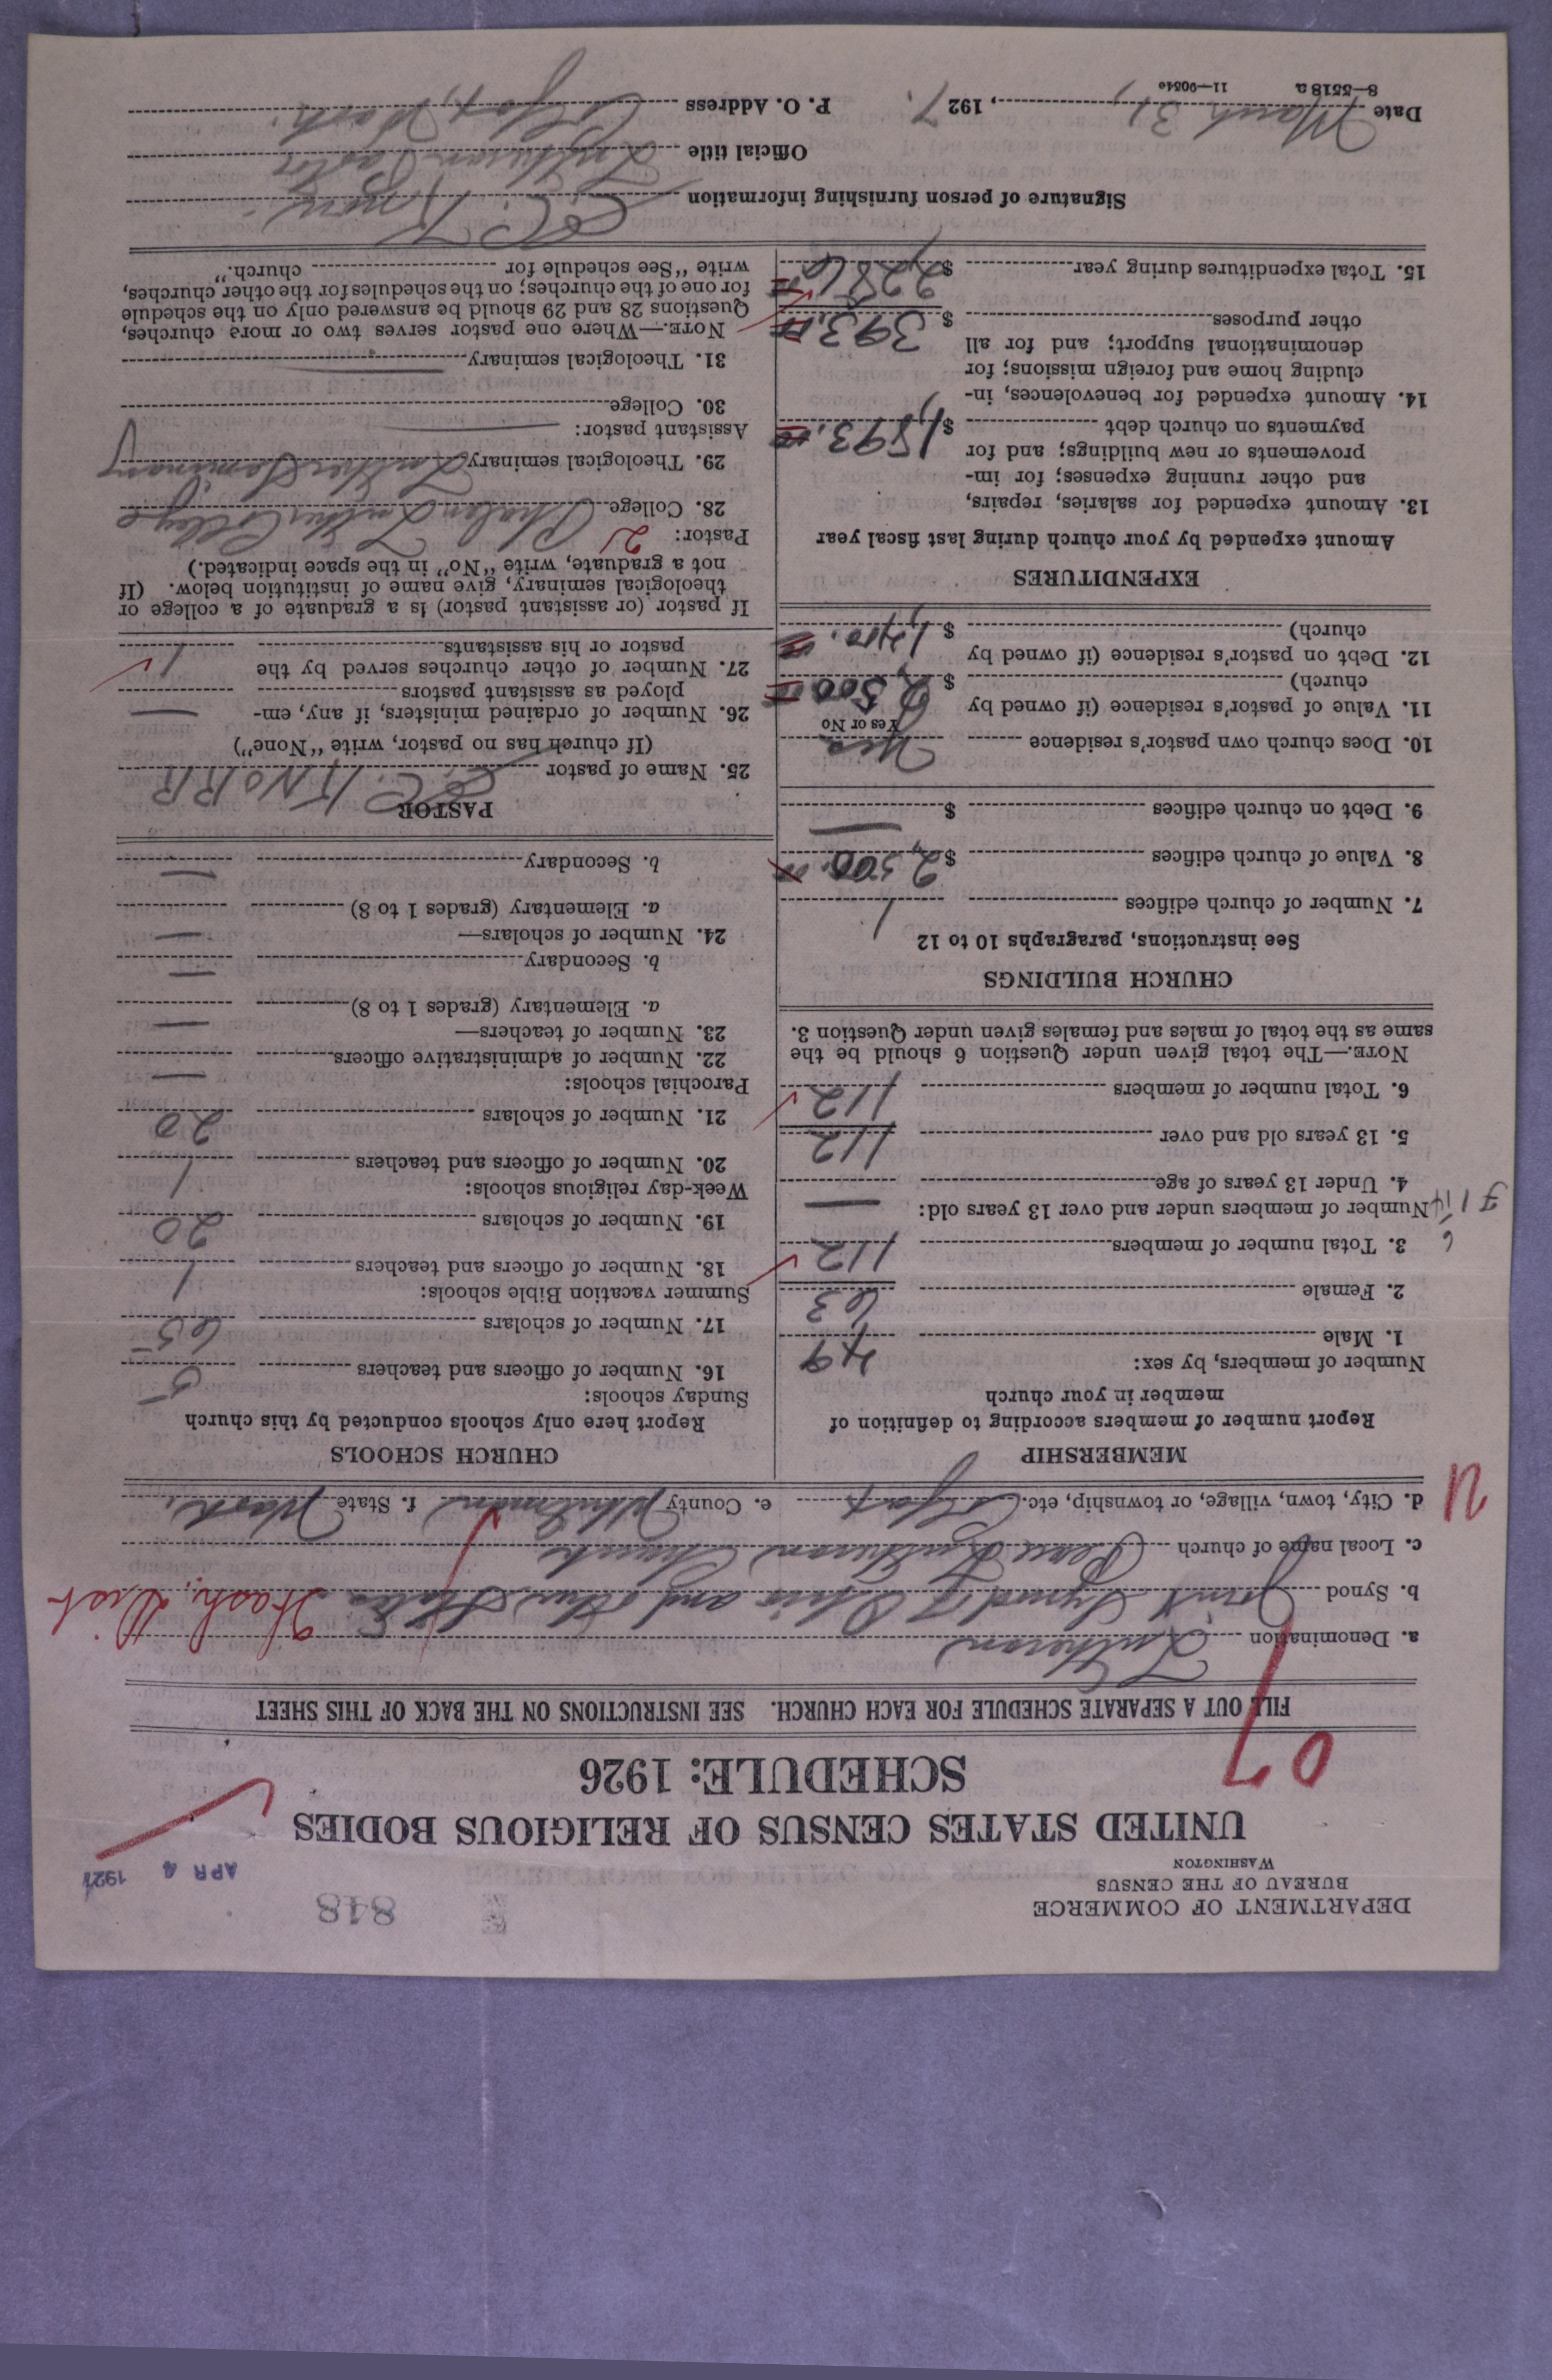 DEPARTMENT OF COMMERCE
BUREAU OF THE CENSUS
WASHINGTON
848
APR 4 1927
UNITED STATES CENSUS OF RELIGIOUS BODIES
SCHEDULE: 1926
07
FILL OUT A SEPARATE SCHEDULE FOR EACH CHURCH. SEE INSTRUCTIONS ON THE BACK OF THIS SHEET
a. Denomination Lutheran
b. Synod Joint Synod of Ohio and other States Wash. Dist
c. Local name of church Peace Lutheran Church
d. City, town, village, or township, etc. Colfax e. County Whitman f. State Wash.
U
MEMBERSHIP
Report number of members according to definition of
member in your church
Number of members, by sex:
1. Male 49
2. Female 63
3. Total number of members 112
Number of members under and over 13 years old:
4. Under 13 years of age —
5. 13 years old and over 112
6. Total number of members 112
NOTE.—The total given under Question 6 should be the
same as the total of males and females given under Question 3.
CHURCH BUILDINGS
See instructions, paragraphs 10 to 12
7. Number of church edifices 1
8. Value of church edifices $ 2,500.00
9. Debt on church edifices $ —
10. Does church own pastor's residence Yes
Yes or No
11. Value of pastor's residence (if owned by
church) $ 2,500.00
12. Debt on pastor's residence (if owned by
church) $
EXPENDITURES
Amount expended by your church during last fiscal year
13. Amount expended for salaries, repairs,
and other running expenses; for im-
provements or new buildings; and for
payments on church debt $ 1,893.00
14. Amount expended for benevolences, in-
cluding home and foreign missions; for
denominational support; and for all
other purposes $ 393.00
15. Total expenditures during year $ 2,286
CHURCH SCHOOLS
Report here only schools conducted by this church
Sunday schools:
16. Number of officers and teachers 5
17. Number of scholars 65
Summer vacation Bible schools:
18. Number of officers and teachers 1
19. Number of scholars 20
Week-day religious schools:
20. Number of officers and teachers 1
21. Number of scholars 20
Parochial schools:
22. Number of administrative officers —
23. Number of teachers—
a. Elementary (grades 1 to 8) —
b. Secondary —
24. Number of scholars—
a. Elementary (grades 1 to 8) —
b. Secondary —
PASTOR
25. Name of pastor E. C. KNORR
(If church has no pastor, write "None")
26. Number of ordained ministers, if any, em-
ployed as assistant pastors —
27. Number of other churches served by the
pastor or his assistants 1
If pastor (or assistant pastor) is a graduate of a college or
theological seminary, give name of institution below. (If
not a graduate, write "No" in the space indicated.)
Pastor: 2
28. College Phalen Luther College
29. Theological seminary Luther Seminary
Assistant pastor: —
30. College
31. Theological seminary —
NOTE.—Where one pastor serves two or more churches,
Questions 28 and 29 should be answered only on the schedule
for one of the churches; on the schedules for the other churches,
write "See schedule for church."
Signature of person furnishing information E. C. Knorr
Official title Lutheran Pastor
Date March 31, 1927. P. O. Address Colfax, Wash.
8—5518 a 11—9054e